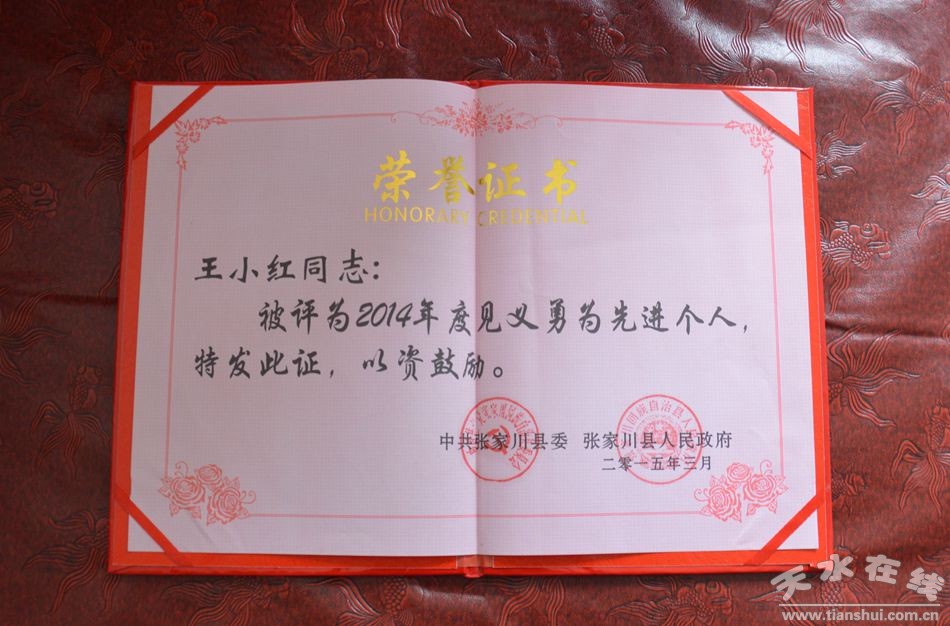 荣誉证书
HONORARY CREDENTIAL
王小红同志：
被评为2014年度见义勇为先进个人，
特发此证，以资鼓励。
中共张家川县委 张家川县人民政府
二零一五年三月
天水在线
www.tianshui.com.cn